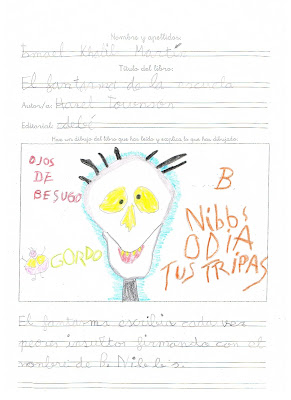 Nombre y apellidos:
Ismael Khalil Martín
Título del libro:
El fantasma de la escuela
Autor/a: Hazel Townson
Editorial: edebé
Haz un dibujo del libro que has leído y explica lo que has dibujado.
OJOS
DE
BESUGO
GORDO
B.
Nibbs
ODIA
TUS TRIPAS
El fantasma escribía cada vez
peores insultos firmando con el
nombre de B. Nibbs.